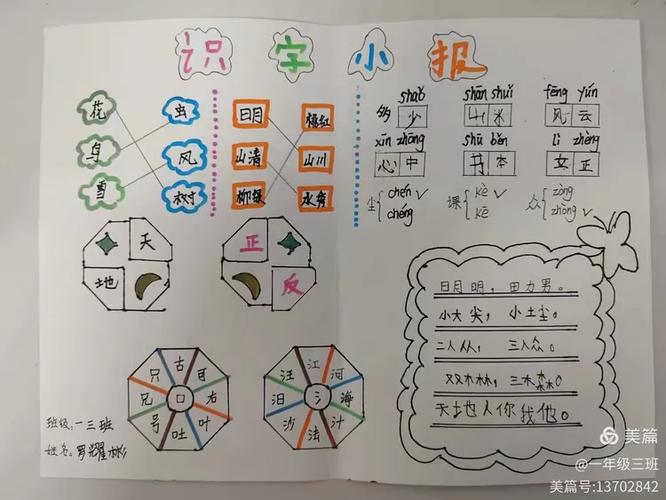 识字小报
花 虫
鸟 风
雪 树
日月
山清 山川
柳绿 水秀
shaǒ shān shuǐ fēng yún
多少 山水 风云
xīn zhōng shū běn lì zhèng
心中 书本 立正
尘 chén ✓ chéng
课 kè ✓ kē
众 zòng zhòng ✓
天
地
正
反
古 可 右 叶 吐 号 兄 只 口
江 河 海 汁 法 沙 汩 汪 氵
日月明，田力男。
小大尖，小土尘。
二人从，三人众。
双木林，三木森。
天地人你我他。
班级：一三班
姓名：罗耀彬
美篇
@一年级三班
美篇号:13702842